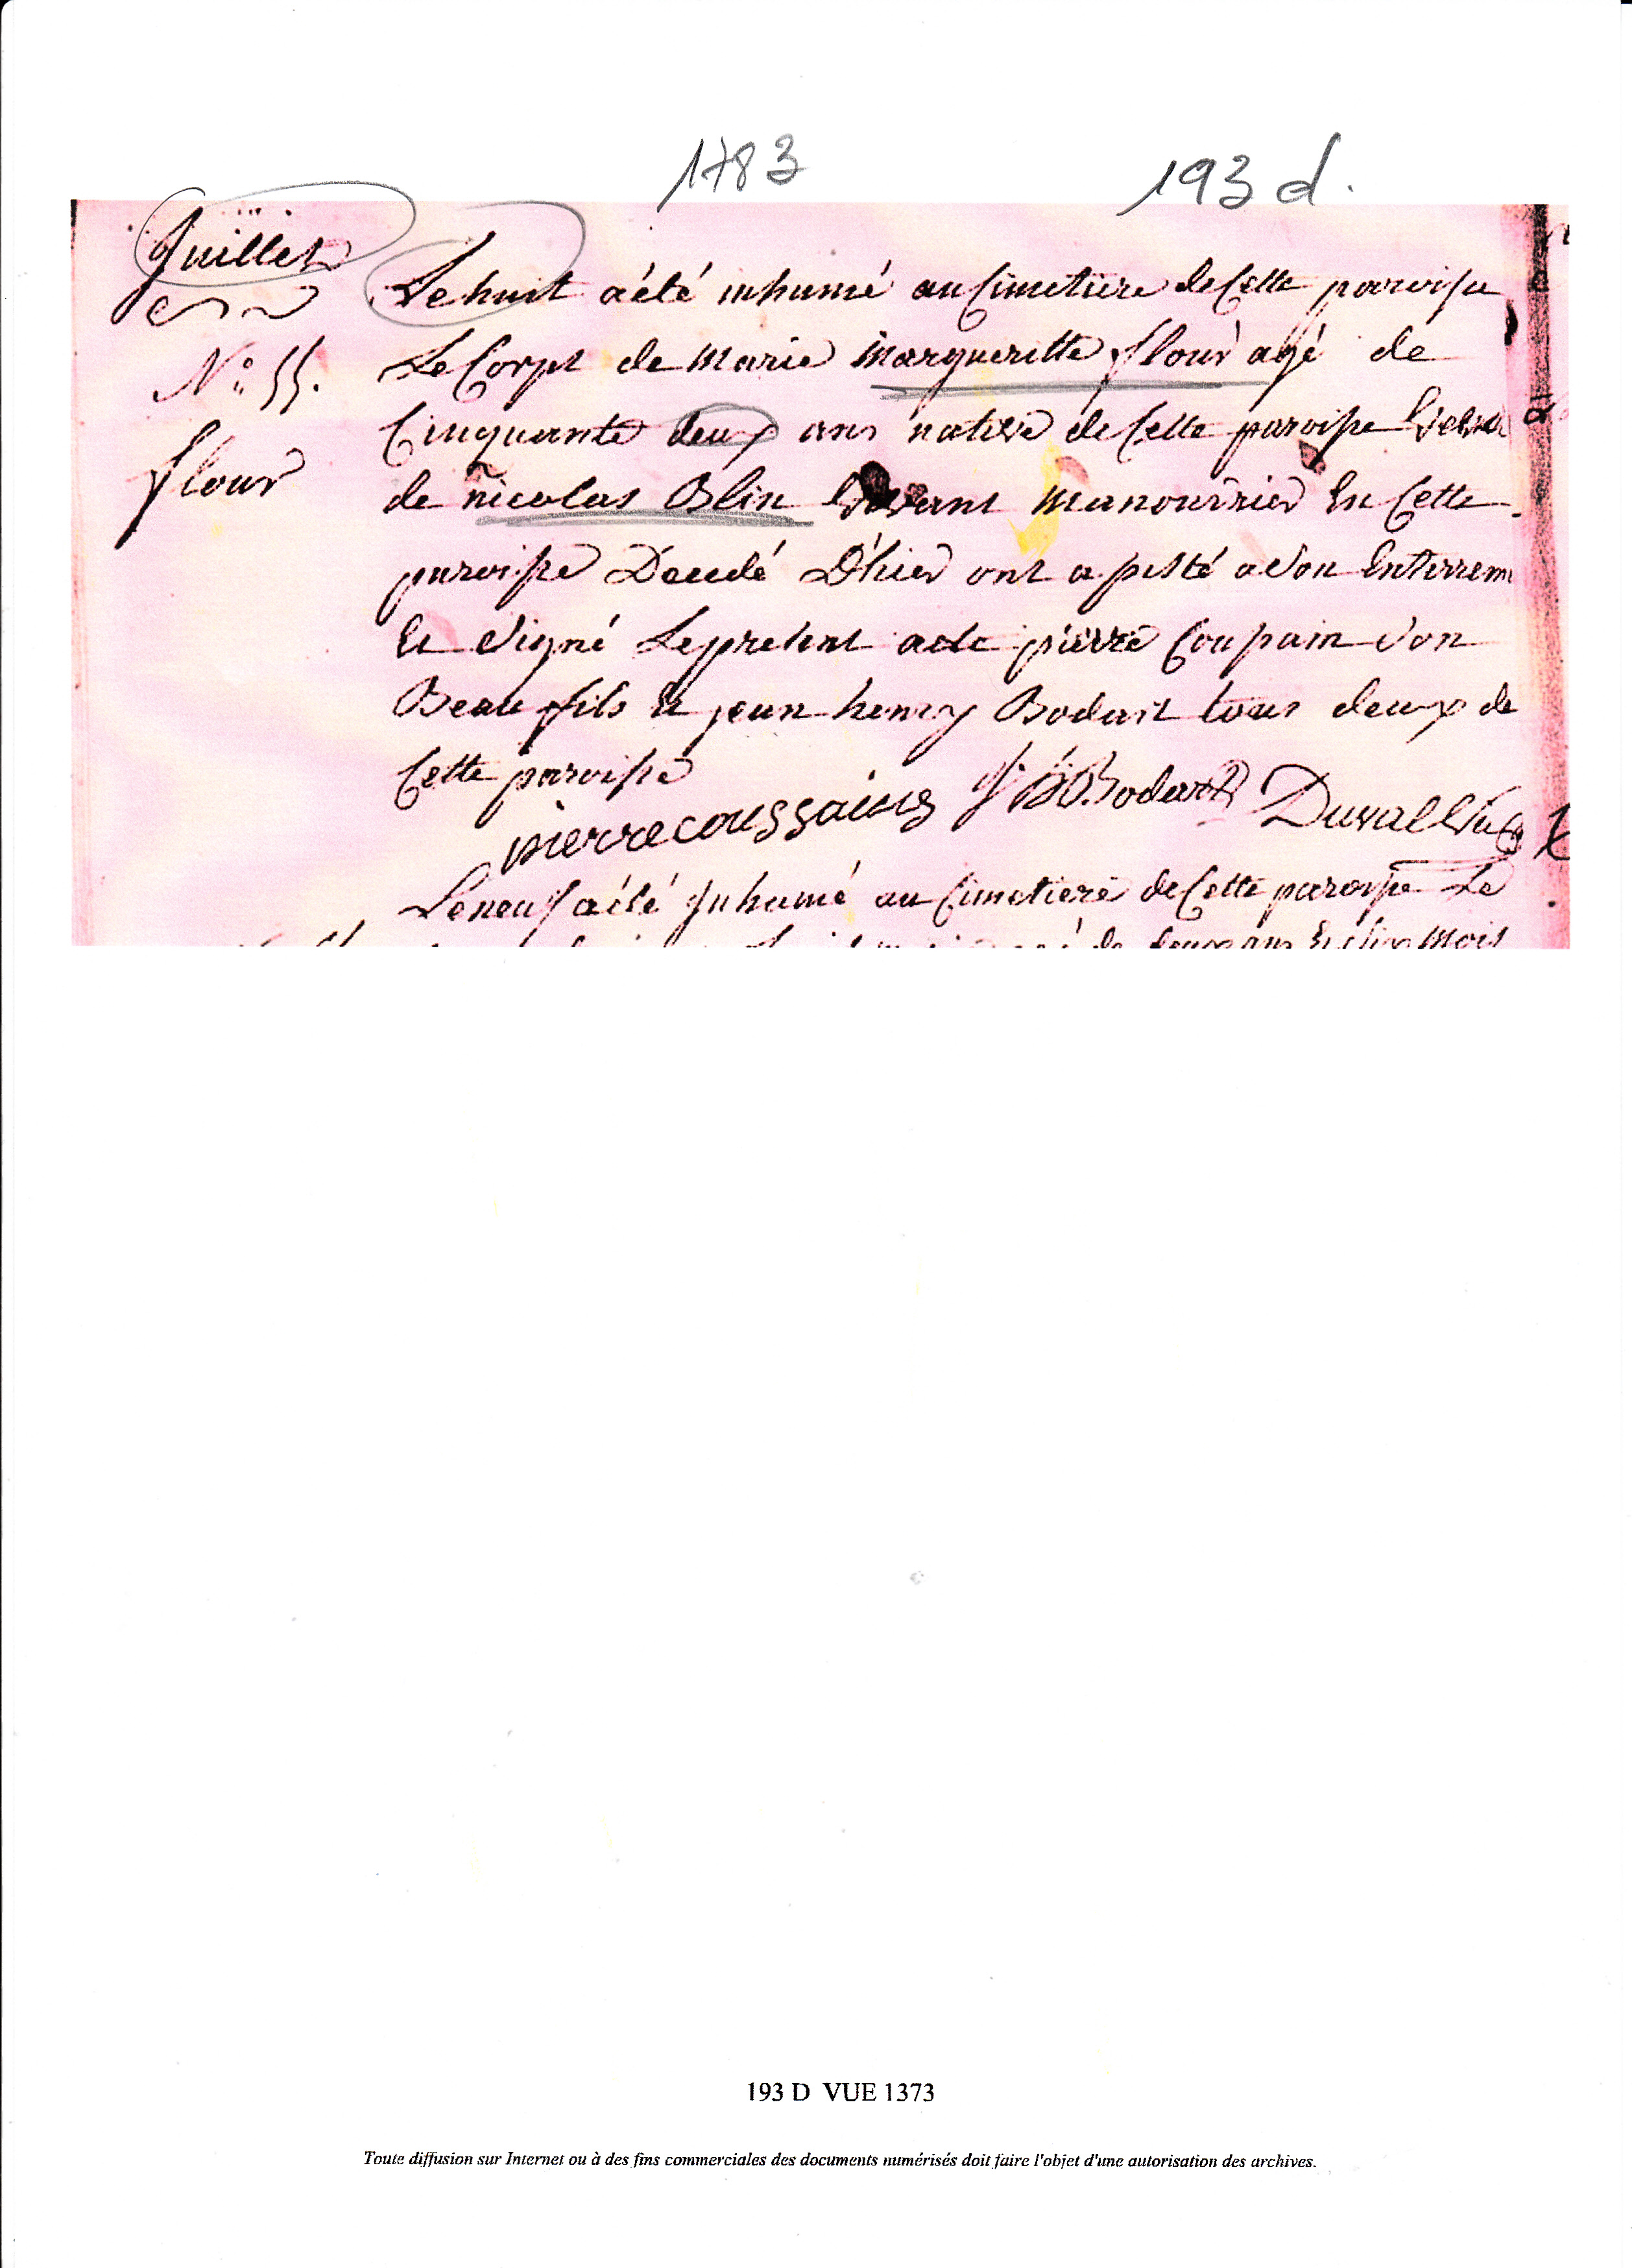 1783
193 d.
Juillet
N° 55.
flour
Le huit a été inhumé au Cimetiere de Cette paroisse
Le Corps de Marie Margueritte flour agé de
Cinquante deux ans native de Cette paroisse
de nicolas Blin vivant manouvrier En Cette
paroisse Decedé D'hier ont assisté a son Enterrem
Et signé Le present acte pierre Coupain son
Beau fils Et jean henry Bodart tous deux de
Cette paroisse
pierre coussains J H Bodart Duval
Le neuf a été Inhumé au Cimetiere de Cette paroisse Le
193 D VUE 1373
Toute diffusion sur Internet ou à des fins commerciales des documents numérisés doit faire l'objet d'une autorisation des archives.